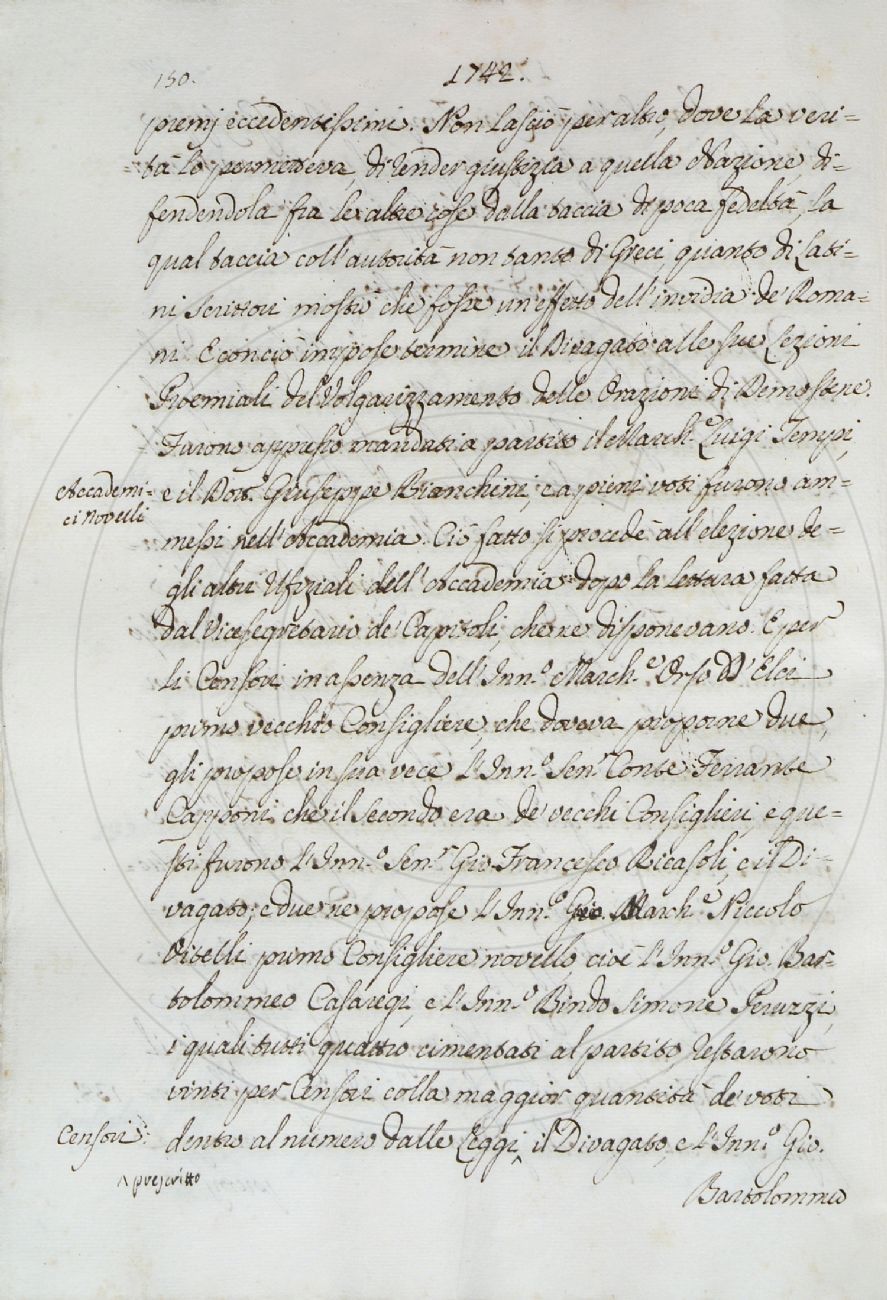 130. 1742.
premj eccedentissimi. Non lasciò per altro, dove la veri=
=tà lo permetteva, di render giustizia a quella Nazione, di=
fendendola fra le altre cose dalla taccia di poca fedeltà, la
qual taccia coll'autorità non tanto di Greci quanto di Lati=
ni Scrittori mostrò che fosse un effetto dell'invidia de' Roma=
ni. E con ciò impose termine il Divagato alle sue Lezioni
Proemiali del Volgarizzamento delle Orazioni di Demostene.
Furono appresso mandati a partito il March.e Luigi Tempi,
Accademi=
ci Novelli
e il Dott.r Giuseppe Bianchini, e a pieni voti furono am=
messi nell'Accademia. Ciò fatto si procedè all'elezione de=
gli altri Ufiziali dell'Accademia dopo la lettura fatta
dal Vicesegretario de' Capitoli, che ne disponevano. E per
li Censori in assenza dell'Inn.o March.e Orso D'Elci
primo vecchio Consigliere, che doveva proporne due,
gli propose in sua vece l'Inn.o Sen.r Conte Ferrante
Capponi, che il secondo era de' vecchi Consiglieri, e que=
sti furono l'Inn.o Sen.r Gio. Francesco Ricasoli, e il Di=
vagato; e due ne propose l'Inn.o March.e Niccolò
Vitelli primo Consigliere novello, cioè l'Inn.o Gio. Bar=
tolommeo Casaregi, e l'Inn.o Bindo Simone Peruzzi,
i quali tutti quattro cimentati al partito restarono
vinti per Censori colla maggior quantità de' voti
Censori.
dentro al numero dalle Leggi^, il Divagato, e l'Inn.o Gio.
^ prescritto
Bartolommeo